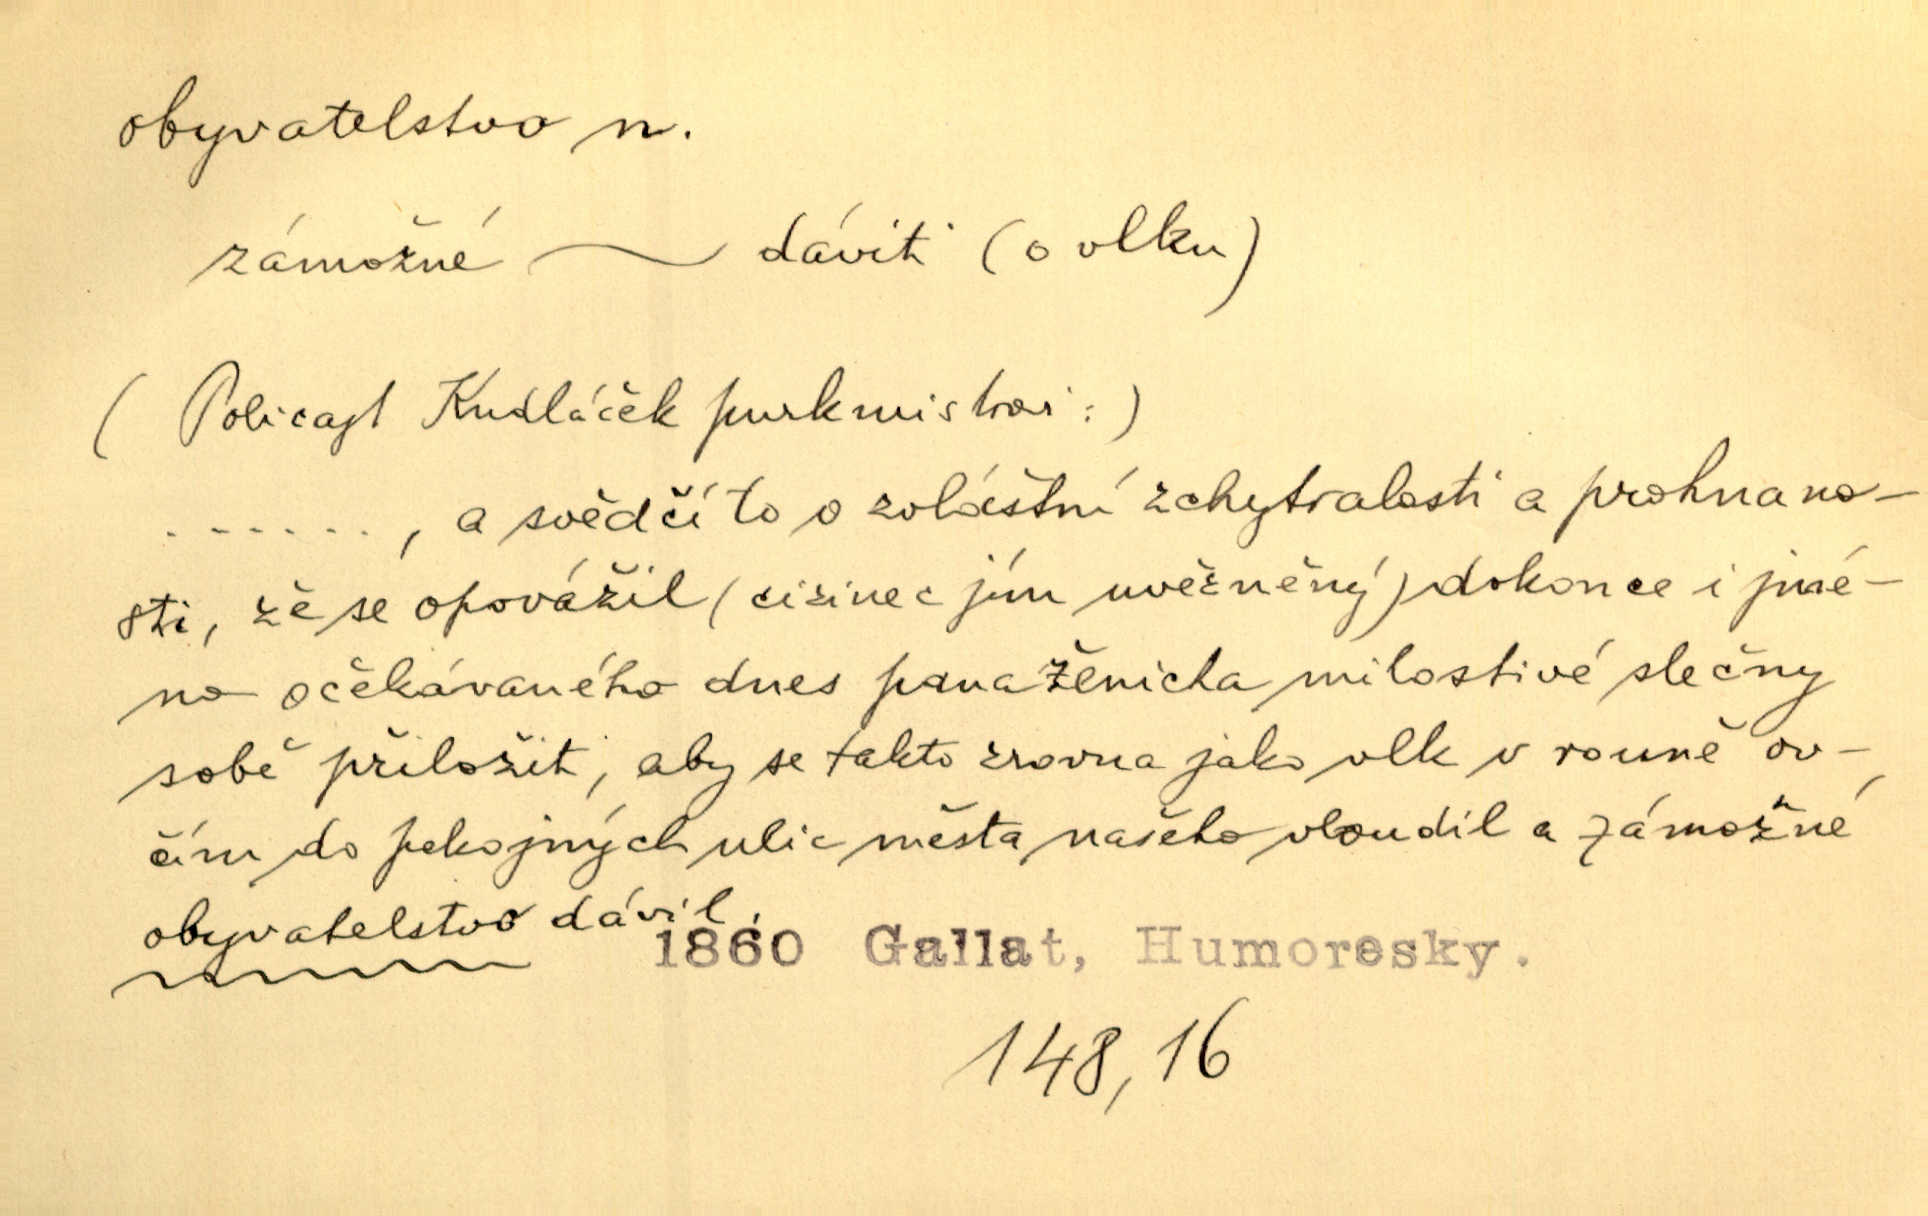 obyvatelstvo n.
zámožné ~ dáviti (o vlku)
( Policajt Kudláček purkmistrovi : )
. - - - - - . , a svědčí to o zvláštní zchytralosti a prohnano-
sti, že se opovážil (cizinec jím uvězněný) dokonce i jmé-
no očekávaného dnes pana ženicha milostivé slečny
sobě přiložiti, aby se takto zrovna jako vlk v rouně ov-
čím do pokojných ulic města našeho vloudil a zámožné
obyvatelstvo dávil.
1860 Gallat, Humoresky.
148, 16